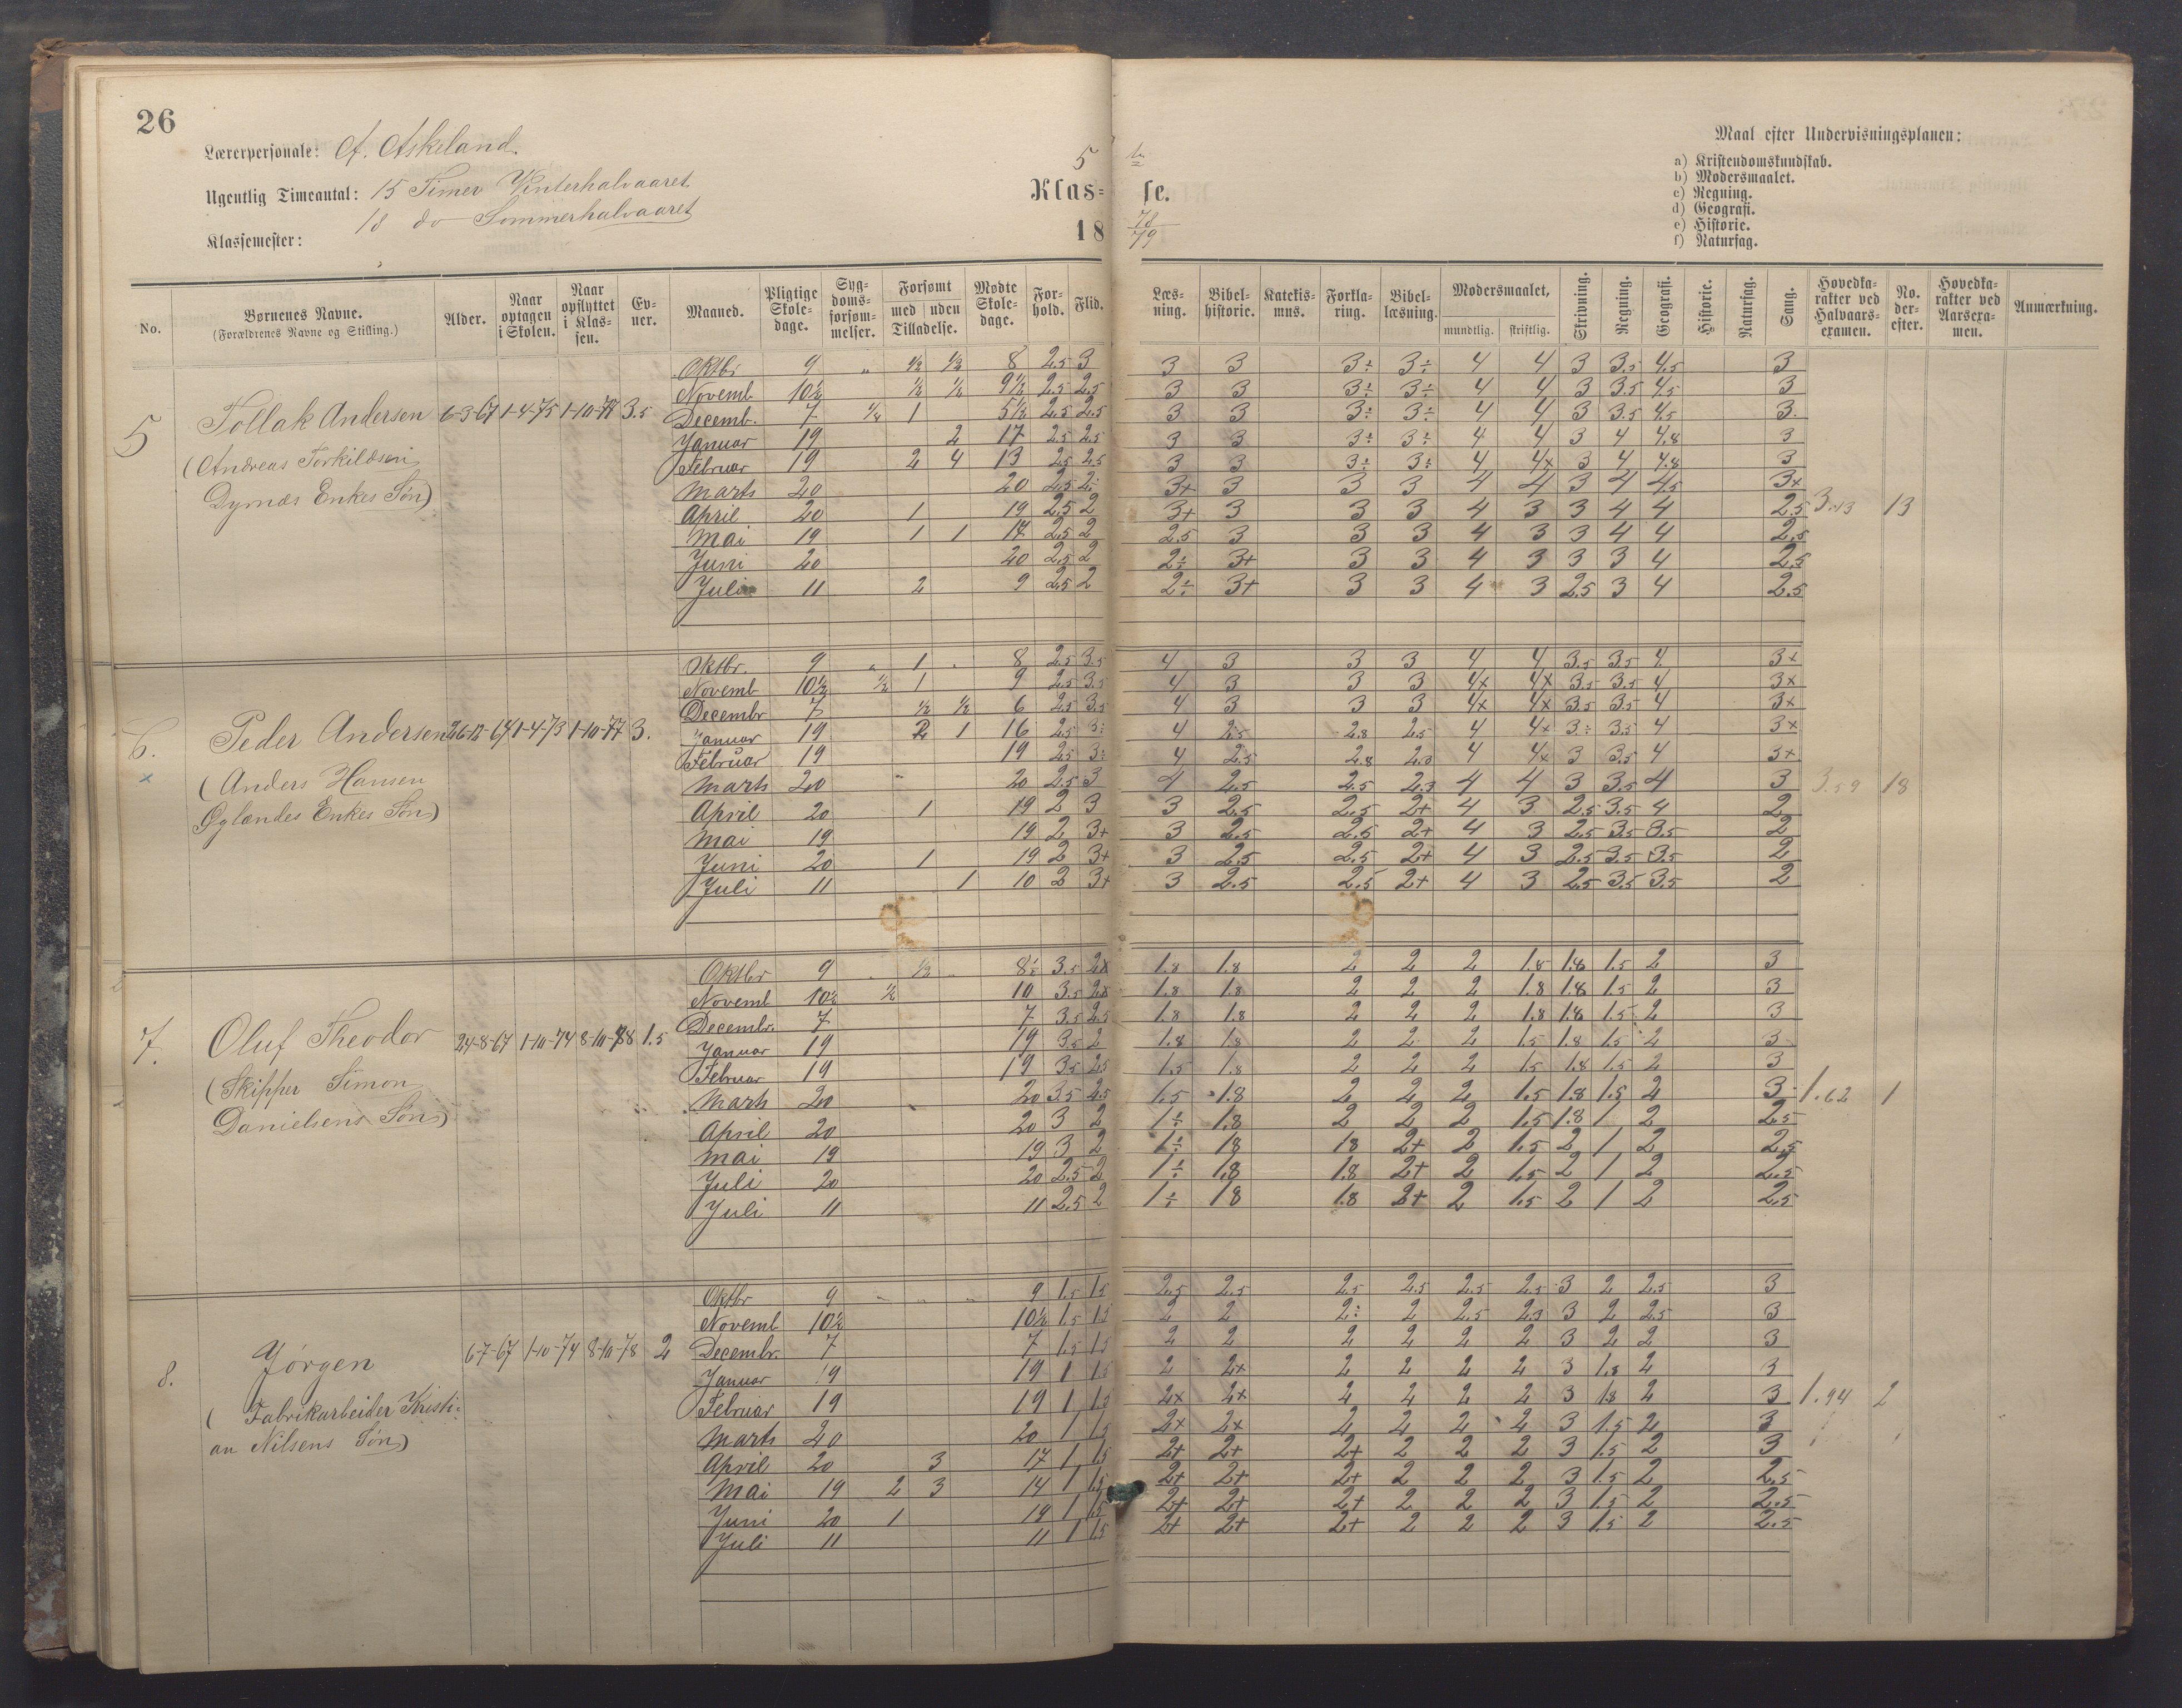 26
Lærerpersonale: A. Askeland.
Ugentlig Timeantal: 15 Timer Vinterhalvaaret
18 do Sommerhalvaaret
Klassemester:
5te
Klasse.
18 78/79
Maal efter Undervisningsplanen:
a) Kristendomskundskab.
b) Modersmaalet.
c) Regning.
d) Geografi.
e) Historie.
f) Naturfag.
No. Børnenes Navne. (Forældrenes Navne og Stilling.) Alder. Naar optagen i Skolen. Naar opflyttet i Klassen. Evner. Maaned. Pligtige Skoledage. Sygdomsforsømmelser. Forsømt med uden Tilladelse. Mødte Skoledage. Forhold. Flid. Læsning. Bibelhistorie. Katekismus. Forklaring. Bibellæsning. Modersmaalet, mundtlig. skriftlig. Skrivning. Regning. Geografi. Historie. Naturfag. Sang. Hovedkarakter ved Halvaarsexamen. No. derefter. Hovedkarakter ved Aarsexamen. Anmærkning.
5 Tollak Andersen 6-3-67 1-4-75 1-10-77 3.5
(Andreas Torkildsen
Dyrnæs Enkes Søn)
Oktbr 9 „ ½ ½ 8 2.5 3 3 3 3÷ 3÷ 4 4 3 3.5 4.5 3
Novemb. 10½ ½ ½ 9½ 2.5 2.5 3 3 3÷ 3÷ 4 4 3 3.5 4.5 3
Decemb. 7 ½ 1 5½ 2.5 2.5 3 3 3÷ 3÷ 4 4 3 3.5 4.5 3.
Januar 19 2 17 2.5 2.5 3 3 3÷ 3÷ 4 4 3 4 4.8 3
Februar 19 2 4 13 2.5 2.5 3 3 3÷ 3÷ 4 4x 3 4 4.8 3
Marts 20 20 2.5 2÷ 3+ 3 3 3 4 4 3 4 4.5 3+
April 20 1 19 2.5 2 3+ 3 3 3 4 3 3 4 4 2.5 3.13 13
Mai 19 1 1 17 2.5 2 2.5 3 3 3 4 3 3 4 4 2.5
Juni 20 20 2.5 2 2÷ 3+ 3 3 4 3 3 3 4 2.5
Juli 11 2 9 2.5 2 2÷ 3+ 3 3 4 3 2.5 3 4 2.5
6. Peder Andersen 26-12-67 1-4-73 1-10-77 3.
x (Anders Hansen
Gylandes Enkes Søn)
Oktbr. 9 „ 1 „ 8 2.5 3.5 4 3 3 3 4 4 3.5 3.5 4. 3+
Novemb 10½ ½ 1 9 2.5 3.5 4 3 3 3 4x 4x 3.5 3.5 4 3x
Decembr 7 ½ ½ 6 2.5 3.5 4 3 3 3 4x 4x 3.5 3.5 4 3+
Januar 19 2 1 16 2.5 3÷ 4 2.5 2.8 2.5 4 4x 3÷ 3.5 4 3x
Februar 19 19 2.5 3÷ 4 2.5 2.8 2.3 4 4x 3 3.5 4 3+
Marts 20 „ 20 2.5 3 4 2.5 2.5 2.3 4 4 3 3.5 4 3 3.59 18
April 20 1 19 2 3 3 2.5 2.5 2+ 4 3 2.5 3.5 4 2
Mai 19 19 2 3+ 3 2.5 2.5 2+ 4 3 2.5 3.5 3.5 2
Juni 20 1 19 2 3+ 3 2.5 2.5 2+ 4 3 2.5 3.5 3.5 2
Juli 11 1 10 2 3+ 3 2.5 2.5 2+ 4 3 2.5 3.5 3.5 2
7. Oluf Theodor 24-8-67 1-10-74 8-10-78 1.5
(Skipper Simon
Danielsens Søn)
Oktbr 9 „ ½ „ 8½ 3.5 2x 1.8 1.8 2 2 2 1.8 1.8 1.5 2 3
Novemb 10½ ½ 10 3.5 2x 1.8 1.8 2 2 2 1.8 1.8 1.5 2 3
Decembr. 7 7 3.5 2.5 1.8 1.8 2 2 2 1.8 1.8 1.5 2 3
Januar 19 19 3.5 2 1.8 1.8 2 2 2 1.5 1.8 1.5 2 3
Februar 19 19 3.5 2.5 1.5 1.8 2 2 2 1.5 1.8 1.5 2 3
Marts 20 20 3.5 2.5 1.5 1.8 2 2 2 1.5 1.8 1.5 2 3 1.62 1
April 20 20 3 2 1÷ 1.8 2 2 2 1.5 1.8 1 2 2.5
Mai 19 19 3 2 1÷ 18 18 2+ 2 1.5 2 1 2 2.5
Juli 20 20 2.5 2 1÷ 1.8 1.8 2+ 2 1.5 2 1 2 2.5
Juli 11 11 2.5 2 1÷ 18 1.8 2+ 2 1.5 2 1 2 2.5
8. Jørgen 6-7-67 1-10-74 8-10-78 2
(Fabrikarbeider Kristi-
an Nilsens Søn)
Oktbr 9 „ „ „ 9 1.5 1.5 2.5 2.5 2.5 2.5 2.5 2.5 3 2 2.5 3
Novemb 10½ 10½ 1.5 1.5 2 2 2÷ 2 2.5 2.3 3 2 2.5 3
Decembr. 7 7 1.5 1.5 2 2 2 2 2 2 3 2 2 3
Januar 19 19 1 1.5 2 2x 2 2 2 2 3 1.8 2 3
Februar 19 19 1 1.5 2x 2x 2 2 2 2 3 1.8 2 3 1.94 2
Marts 20 20 1 1.5 2x 2x 2 2 2 2 3 1.5 2 3
April 20 3 17 1 1.5 2+ 2+ 2+ 2 2 2 3 1.5 2 3
Mai 19 2 3 14 1 1.5 2+ 2+ 2+ 2 2 2 3 1.5 2 2.5
Juni 20 1 19 1 1.5 2+ 2+ 2+ 2 2 2 3 1.5 2 2.5
Juli 11 11 1 1.5 2+ 2+ 2+ 2 2 2 3 1.5 2 2.5